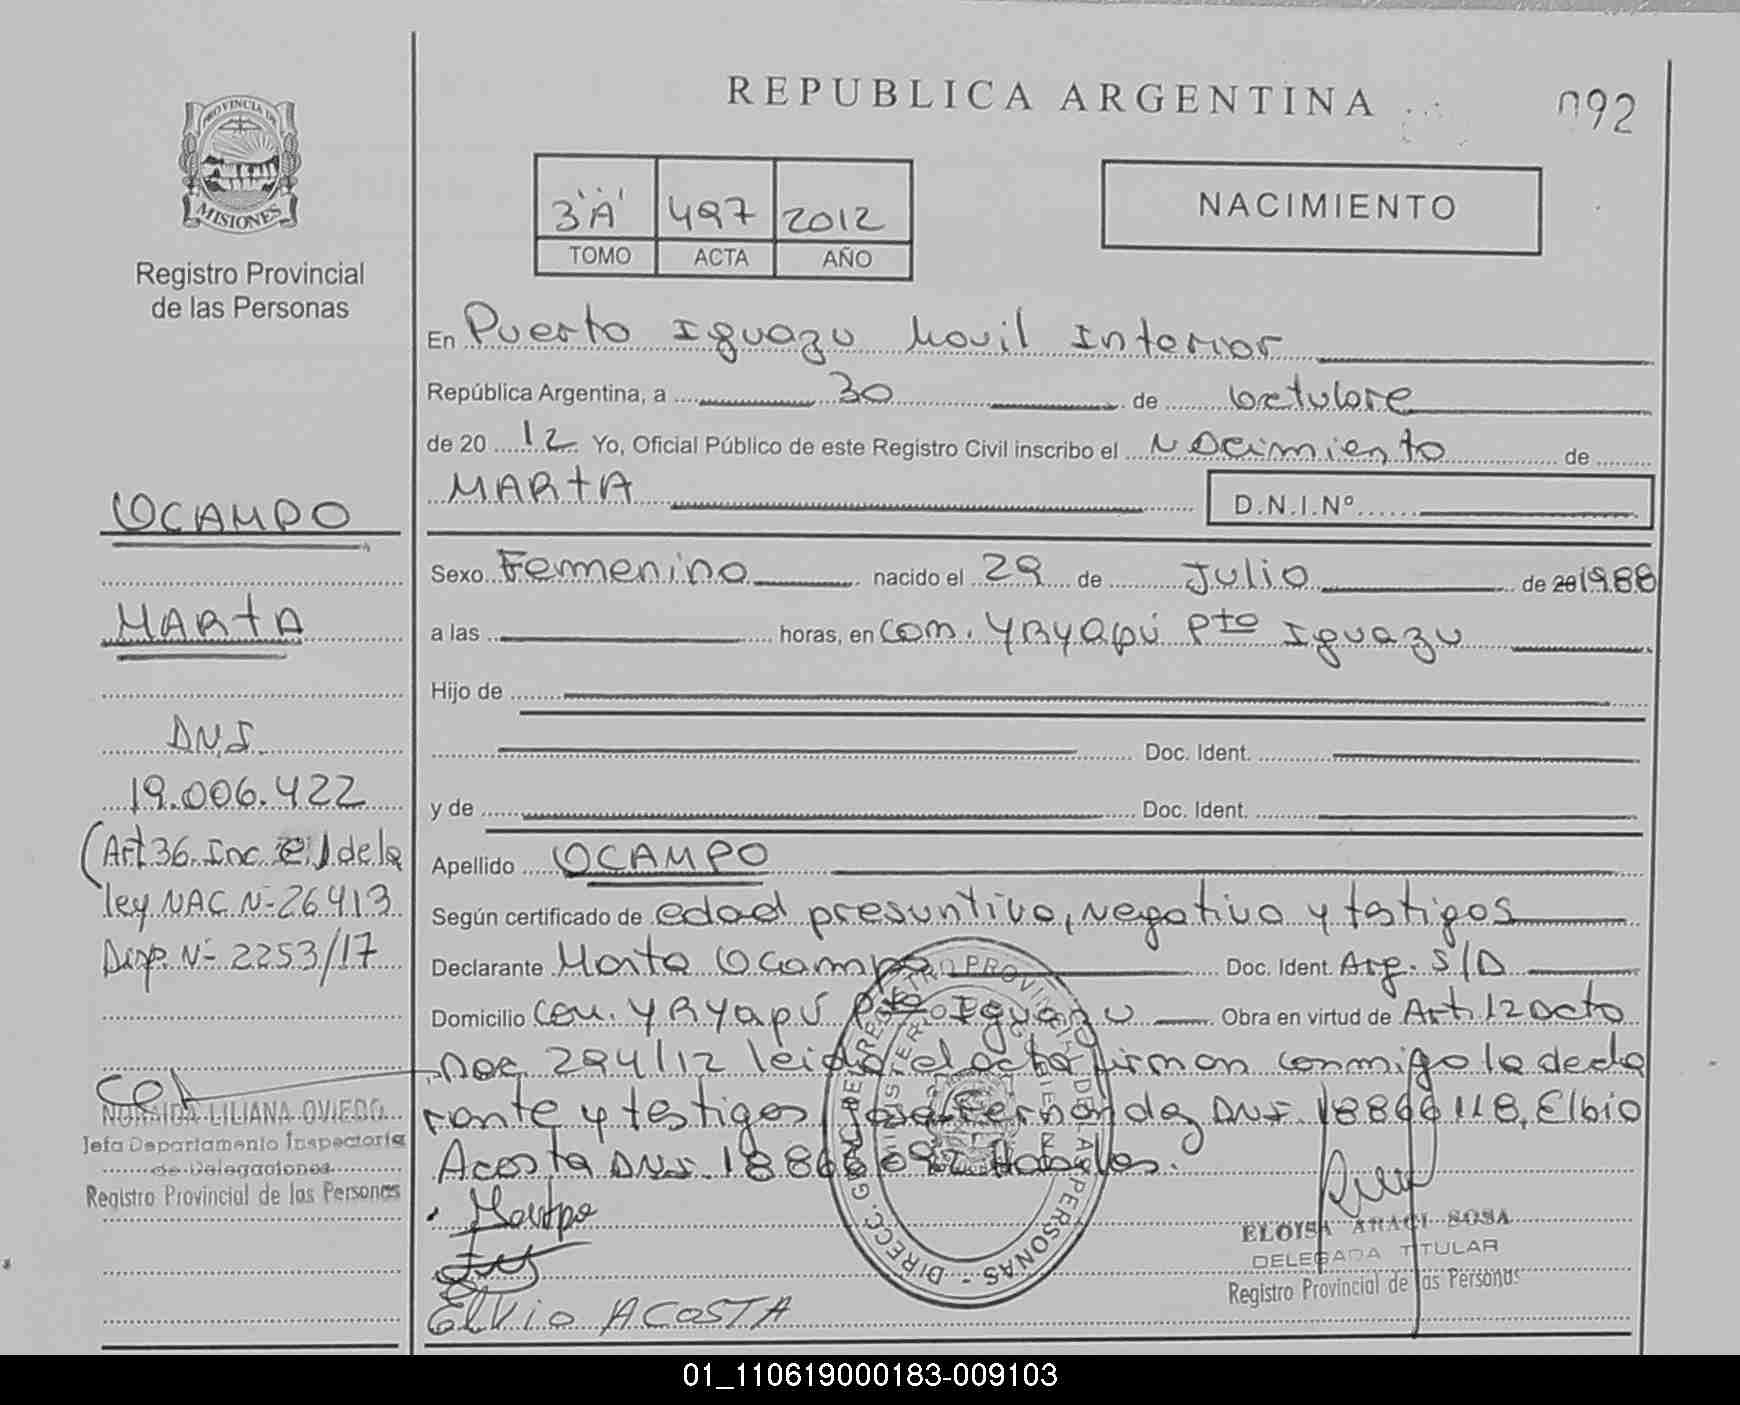 REPUBLICA ARGENTINA
092
PROVINCIA DE
MISIONES
Registro Provincial
de las Personas
3 "A" 497 2012
TOMO ACTA AÑO
NACIMIENTO
En Puerto Iguazu Movil Interior
República Argentina, a 30 de octubre
de 20 12 Yo, Oficial Público de este Registro Civil inscribo el Nacimiento de
MARTA D.N.I.Nº
Sexo Femenino nacido el 29 de Julio de 20 1988
a las horas, en Com. YRyapú Pto Iguazu
Hijo de
Doc. Ident.
y de Doc. Ident.
Apellido OCAMPO
Según certificado de edad presuntiva, negativo y testigos
Declarante Marta Ocampo Doc. Ident. Arg. S/D
Domicilio Com. YRyapú Pto Iguazu Obra en virtud de Art. 12 Dcto
Nac. 294/12 leida el acta firman conmigo la decla
rante y testigos Jose Fernandez DNI. 18866118, Elbio
Acosta DNI. 18866092 Habiles.
ELVio ACOSTA
OCAMPO
MARTA
DNI
19.006.422
(Art 36 Inc e) de la
ley NAC Nº 26413
Disp. Nº 2253/17
LILIANA OVIEDO
Jefa Departamento Inspectoria
de Delegaciones
Registro Provincial de las Personas
ELOISA ARACI SOSA
DELEGADA TITULAR
Registro Provincial de las Personas
01_110619000183-009103